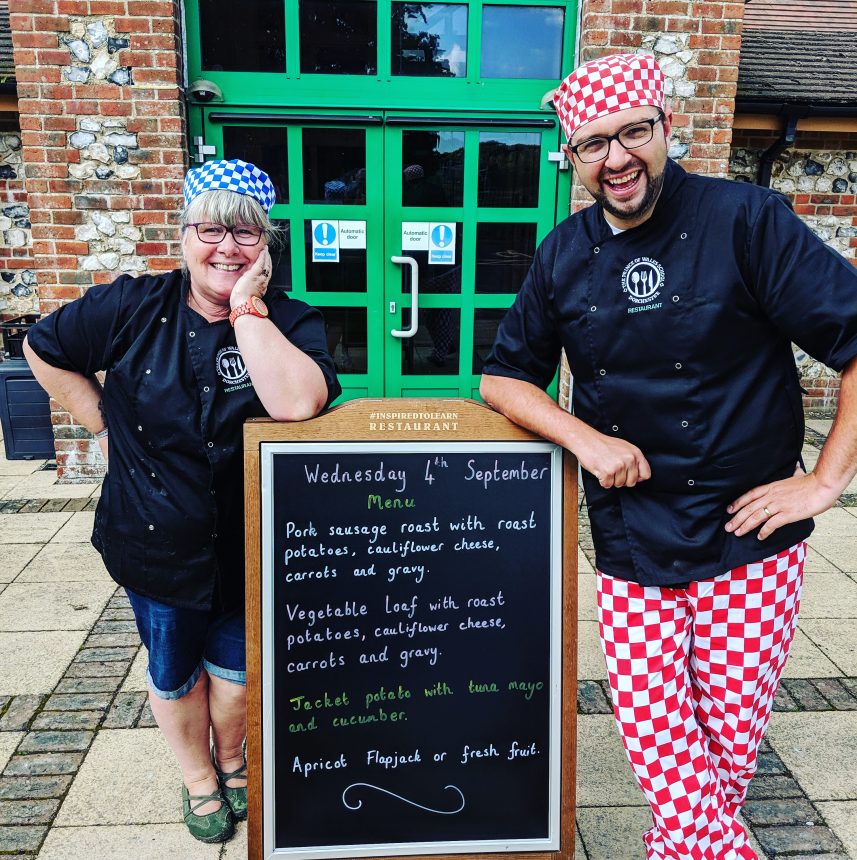 Automatic door
Keep clear
Automatic door
Keep clear
THE PRINCE OF WALES SCHOOL
DORCHESTER
RESTAURANT
RESTAURANT
#INSPIREDTOLEARN
RESTAURANT
Wednesday 4th September
Menu
Pork sausage roast with roast
potatoes, cauliflower cheese,
carrots and gravy.
Vegetable Loaf with roast
potatoes, cauliflower cheese,
carrots and gravy.
Jacket potato with tuna mayo
and cucumber.
Apricot Flapjack or fresh fruit.